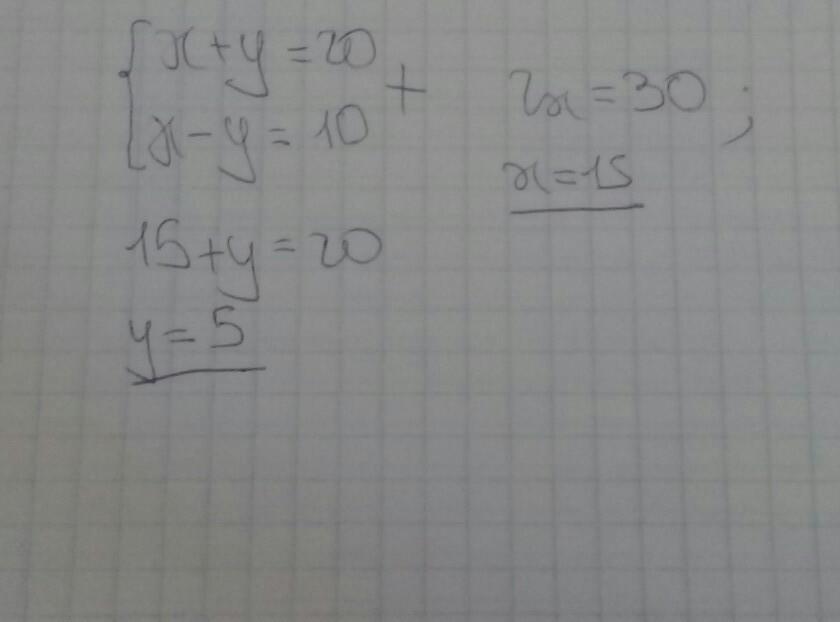 x+y=20
x-y=10
+
2x=30;
x=15
15+y=20
y=5